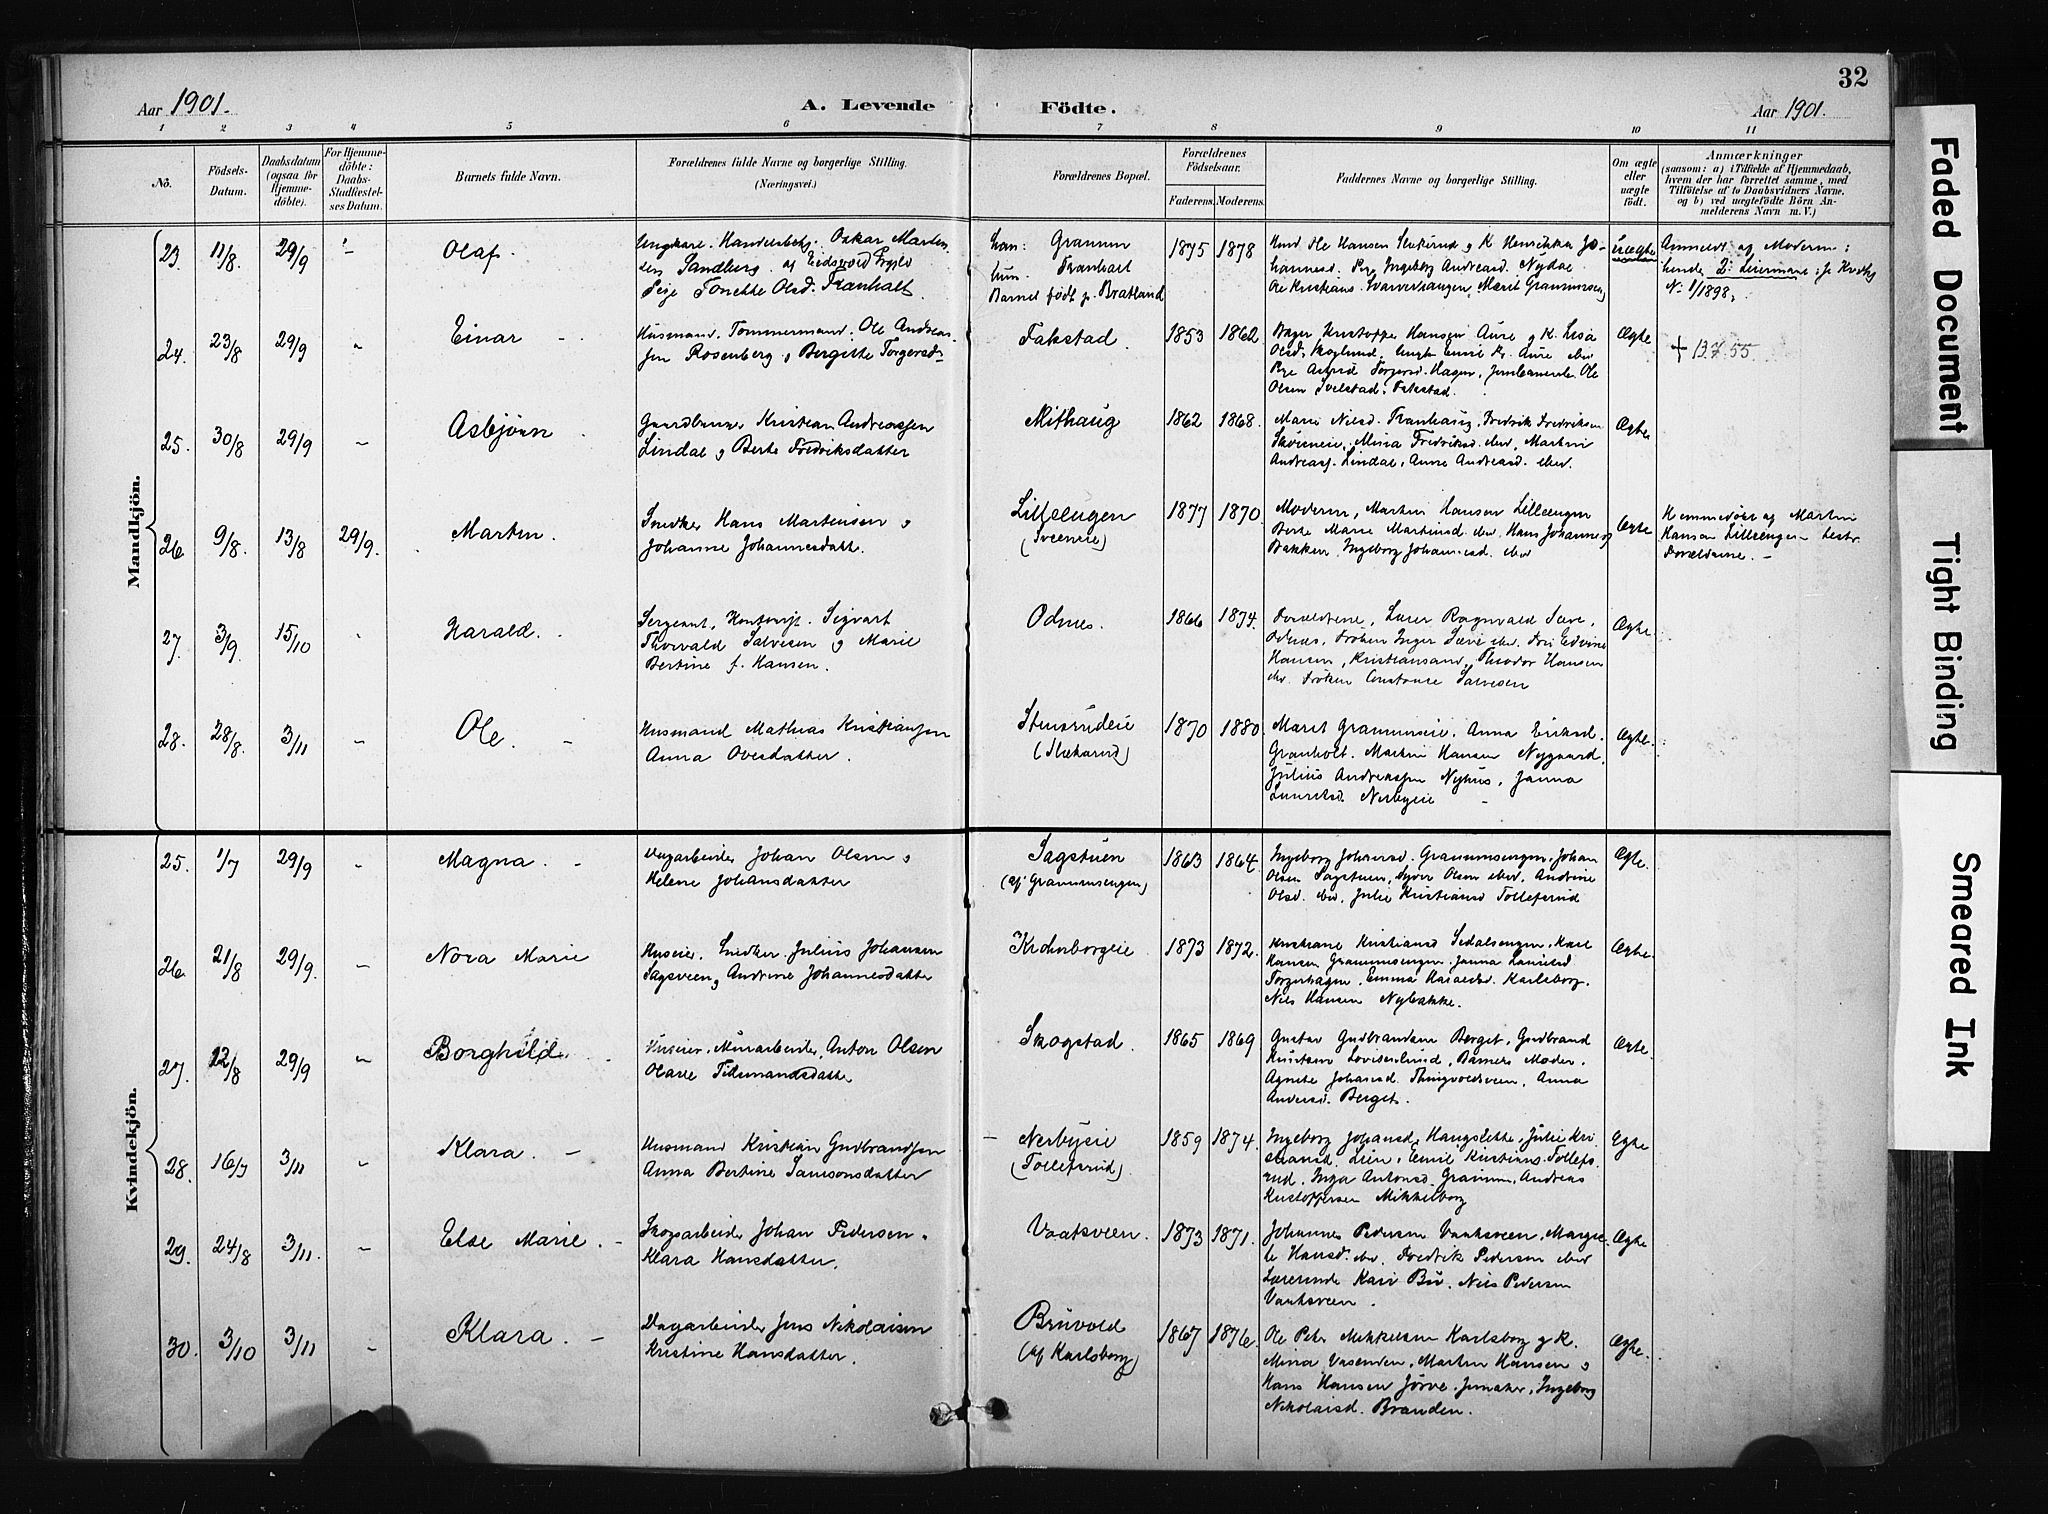 32
Aar 1901.
A. Levende
Födte.
Aar 1901.
1 2 3 4 5 6 7 8 9 10 11
No.
Födsels-
Datum.
Daabsdatum
(ogsaa for
Hjemme-
döbte).
For Hjemme-
döbte:
Daabs-
Stadfæstel-
ses Datum.
Barnets fulde Navn.
Forældrenes fulde Navne og borgerlige Stilling.
(Næringsvei.)
Forældrenes Bopæl.
Forældrenes
Födselsaar.
Faderens. Moderens.
Faddernes Navne og borgerlige Stilling.
Om ægte
eller
uægte
födt.
Anmærkninger
(saasom: a) i Tilfælde af Hjemmedaab,
hvem der har forrettet samme, med
Tilföielse af to Daabsvidners Navne.
og b) ved uægtefödte Börn An-
melderens Navn m. V.)
Mandkjön.
23. 11/8. 29/9 Olaf.
Ungkarl. Handelsbetj. Oskar Marten
sen Sandberg. af Eidsvold Prgld
Pige Tonette Olsd. Tranhalt.
han: Granum
hun: Tranhalt
Barnet født p. Bratland
1875 1878
Uægte
Anmeldt af Moderen:
hendes 2. Leiermaal: jfr Kvikj
No 1/1898.
24. 23/8 29/9 " Einar -
Husmand. Tømmermand. Ole Andreas-
sen Rosenberg & Bergitte Torgersd-
Fakstad.
1853 1862
Olsen Fakstad.
Ægte
+ 13.7.55.
25. 30/8 29/9 " Asbjörn
Gaardbruger Kristian Andreassen
Lindal & Berte Fredriksdatter
Mithaug
1862 1868.
Marie Nilsd. Tranhaug, Fredrik Fredriksen
Skøieneie, Mina Fredriksd. ibid, Martin
Andreasf. Lindal, Anne Andreasd. ibid.
Ægte
26 9/8. 13/8 29/9. Martin.
Snedker Hans Martinsen &
Johanne Johannesdatt.
Lilleengen
1877 1870.
Moderen, Martin Hansen Lilleengen
Berte Marie Martinsd ibid, Hans Johannes
Bakken, Ingeborg Johannesd. ibid
Ægte
Hjemmedøbt af Martin
Hansen Lilleengen
Forældrene. -
27. 3/9. 15/10 " Harald.
Sergeant, Kontorist. Sigvart
Thorvald Salvesen & Marie
Bertine f. Hansen.
Odnes.
1866 1874.
Forældrene, Lærer Ragnvald Sæve,
Odnæs, Frøken Inger Sæve ibid. Fru Edvine
Hansen, Kristiansand, Theodor Hansen
ibid. Frøken Constance Salvesen
Ægte
28. 28/8. 3/11 " Ole. -
Husmand Mathias Kristiansen
Anna Ovesdatter.
Stensrudeie
1870 1880.
Marit Granumeie, Anna Eriksd.
Granholt. Martin Hansen Nygaard.
Julius Andreassen Nyhus, Janna
Lauritsd. Nerbyeie -
Ægte.
Kvindekjön.
25. 1/7 29/9 " Magna. -
Dagarbeider Johan Olsen &
Helene Johansdatter
Sagstuen
(af Granumsengen)
1863 1864.
Ingeborg Johansd. Granumsengen, Johan
Olsen Sagstuen, Syver Olsen ibid, Andrine
Olsd. ibid, Julie Kristiansd Tollefsrud
Ægte.
26. 21/8 29/9. " Nora Marie
Huseier. Snedker Julius Johansen
Sagsveen & Andrine Johannesdatter
Krohnborgeie
1873 1872.
Kristiane Kristiansd Sedalsengen, Karl
Hansen Granumsengen, Janna Lauritsd
Torgerhagen, Emma Haraldsd. Karlsborg.
Nils Hansen Nybakke.
Ægte.
27. 12/8 29/9 " Borghild.
Huseier. Murarbeider, Anton Olsen
Olave Tidemandsdatter
Skogstad.
1865 1869
Gustav Gudbrandsen Berget, Gudbrand
Knutsen Lovisenlund, Barnets Moder.
Agnete Johansd. Thingvoldsveen, Anna
Andersd. Berget.
Ægte.
28. 16/7 3/11 " Klara. -
Husmand Kristian Gudbrandsen
Anna Bertine Samsonsdatter
- Nerbyeie
(Tollefsrud)
1859 1874.
Ingeborg Johansd. Haugslette, Julie Kri
stiansd. Lien, Emil Kristians. Tollefs
rud, Inga Antonsd. Granum, Andreas
Kristoffersen Mikkelborg
Ægte
29. 24/8 3/11. " Else Marie. -
Skogsarbeider Johan Pedersen.
Klara Hansdatter.
Vaatsveen.
1873 1871.
Johannes Pedersen Vaatsveen, Margre-
te Hansd. ibid. Fredrik Pedersen ibid
Lærerinde Kari Bø. Nils Pedersen
Vaatsveen.
Ægte
30. 3/10 3/11 " Klara. -
Dagarbeider Jens Nikolaisen
Kristine Hansdatter.
Bruvold
(af Karlsborg)
1867 1876.
Ole Peter Mikkelsen Karlsborg & K.
Mina Vasenden, Martin Hansen &
Hans Hansen Jörve, Ingeborg
Nikolaisd. Branden.
Ægte.
Faded Document
Tight Binding
Smeared Ink